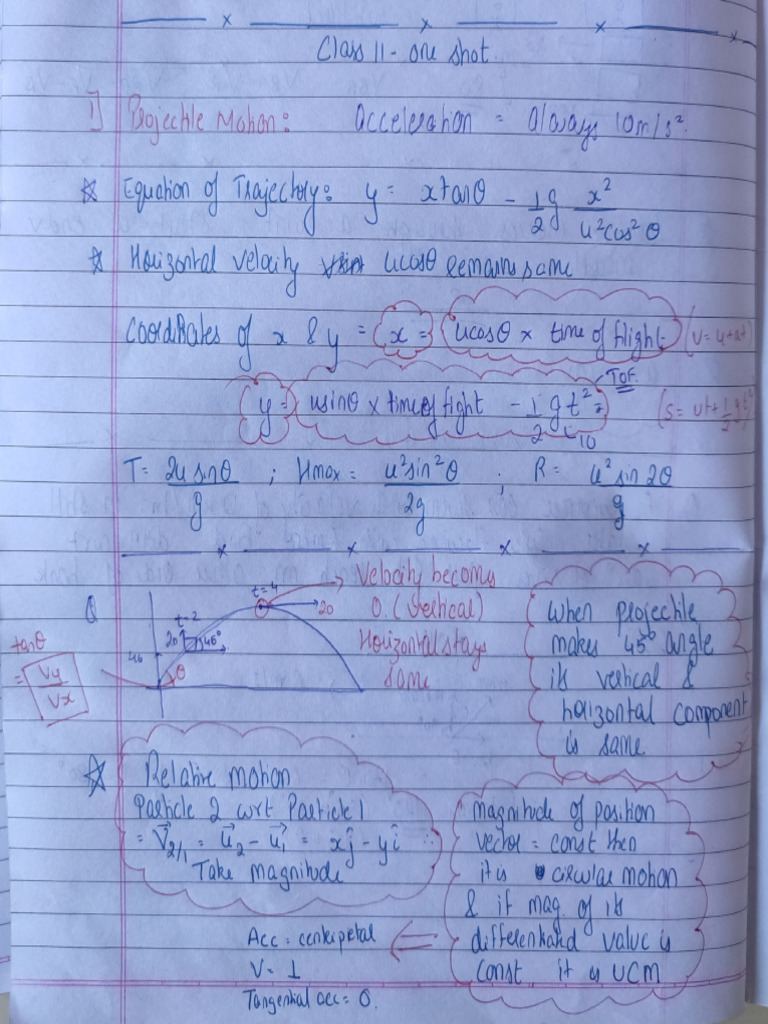 Class 11 - one shot.
1] Projectile Motion: Acceleration = always 10m/s².
☆ Equation of Trajectory: y = x tanθ - 1/2 g x²/u²cos²θ
☆ Horizontal velocity ucosθ remains same
Coordinates of x & y = x = ucosθ × time of flight. (v=u+at)
y = usinθ × time of fight - 1/2 g t² TOF. (s = ut + 1/2 gt²)
10
T = 2u sinθ/g ; Hmax = u²sin²θ/2g ; R = u² sin 2θ/g
Q
t=4
t=2
20
45°
20
θ
tanθ
= Vy/Vx
Velocity becomes
0. (vertical)
Horizontal stays
same
when projectile
makes 45° angle
its vertical &
horizontal component
is same.
☆ Relative motion
Particle 2 wrt Particle 1
= V⃗2/1 = u⃗2 - u⃗1 = xĵ - yî
Take magnitude
magnitude of position
vector = const then
it is circular motion
& if mag. of its
differentiated value is
const it is UCM
Acc = centripetal
V = ⊥
Tangential acc = 0.